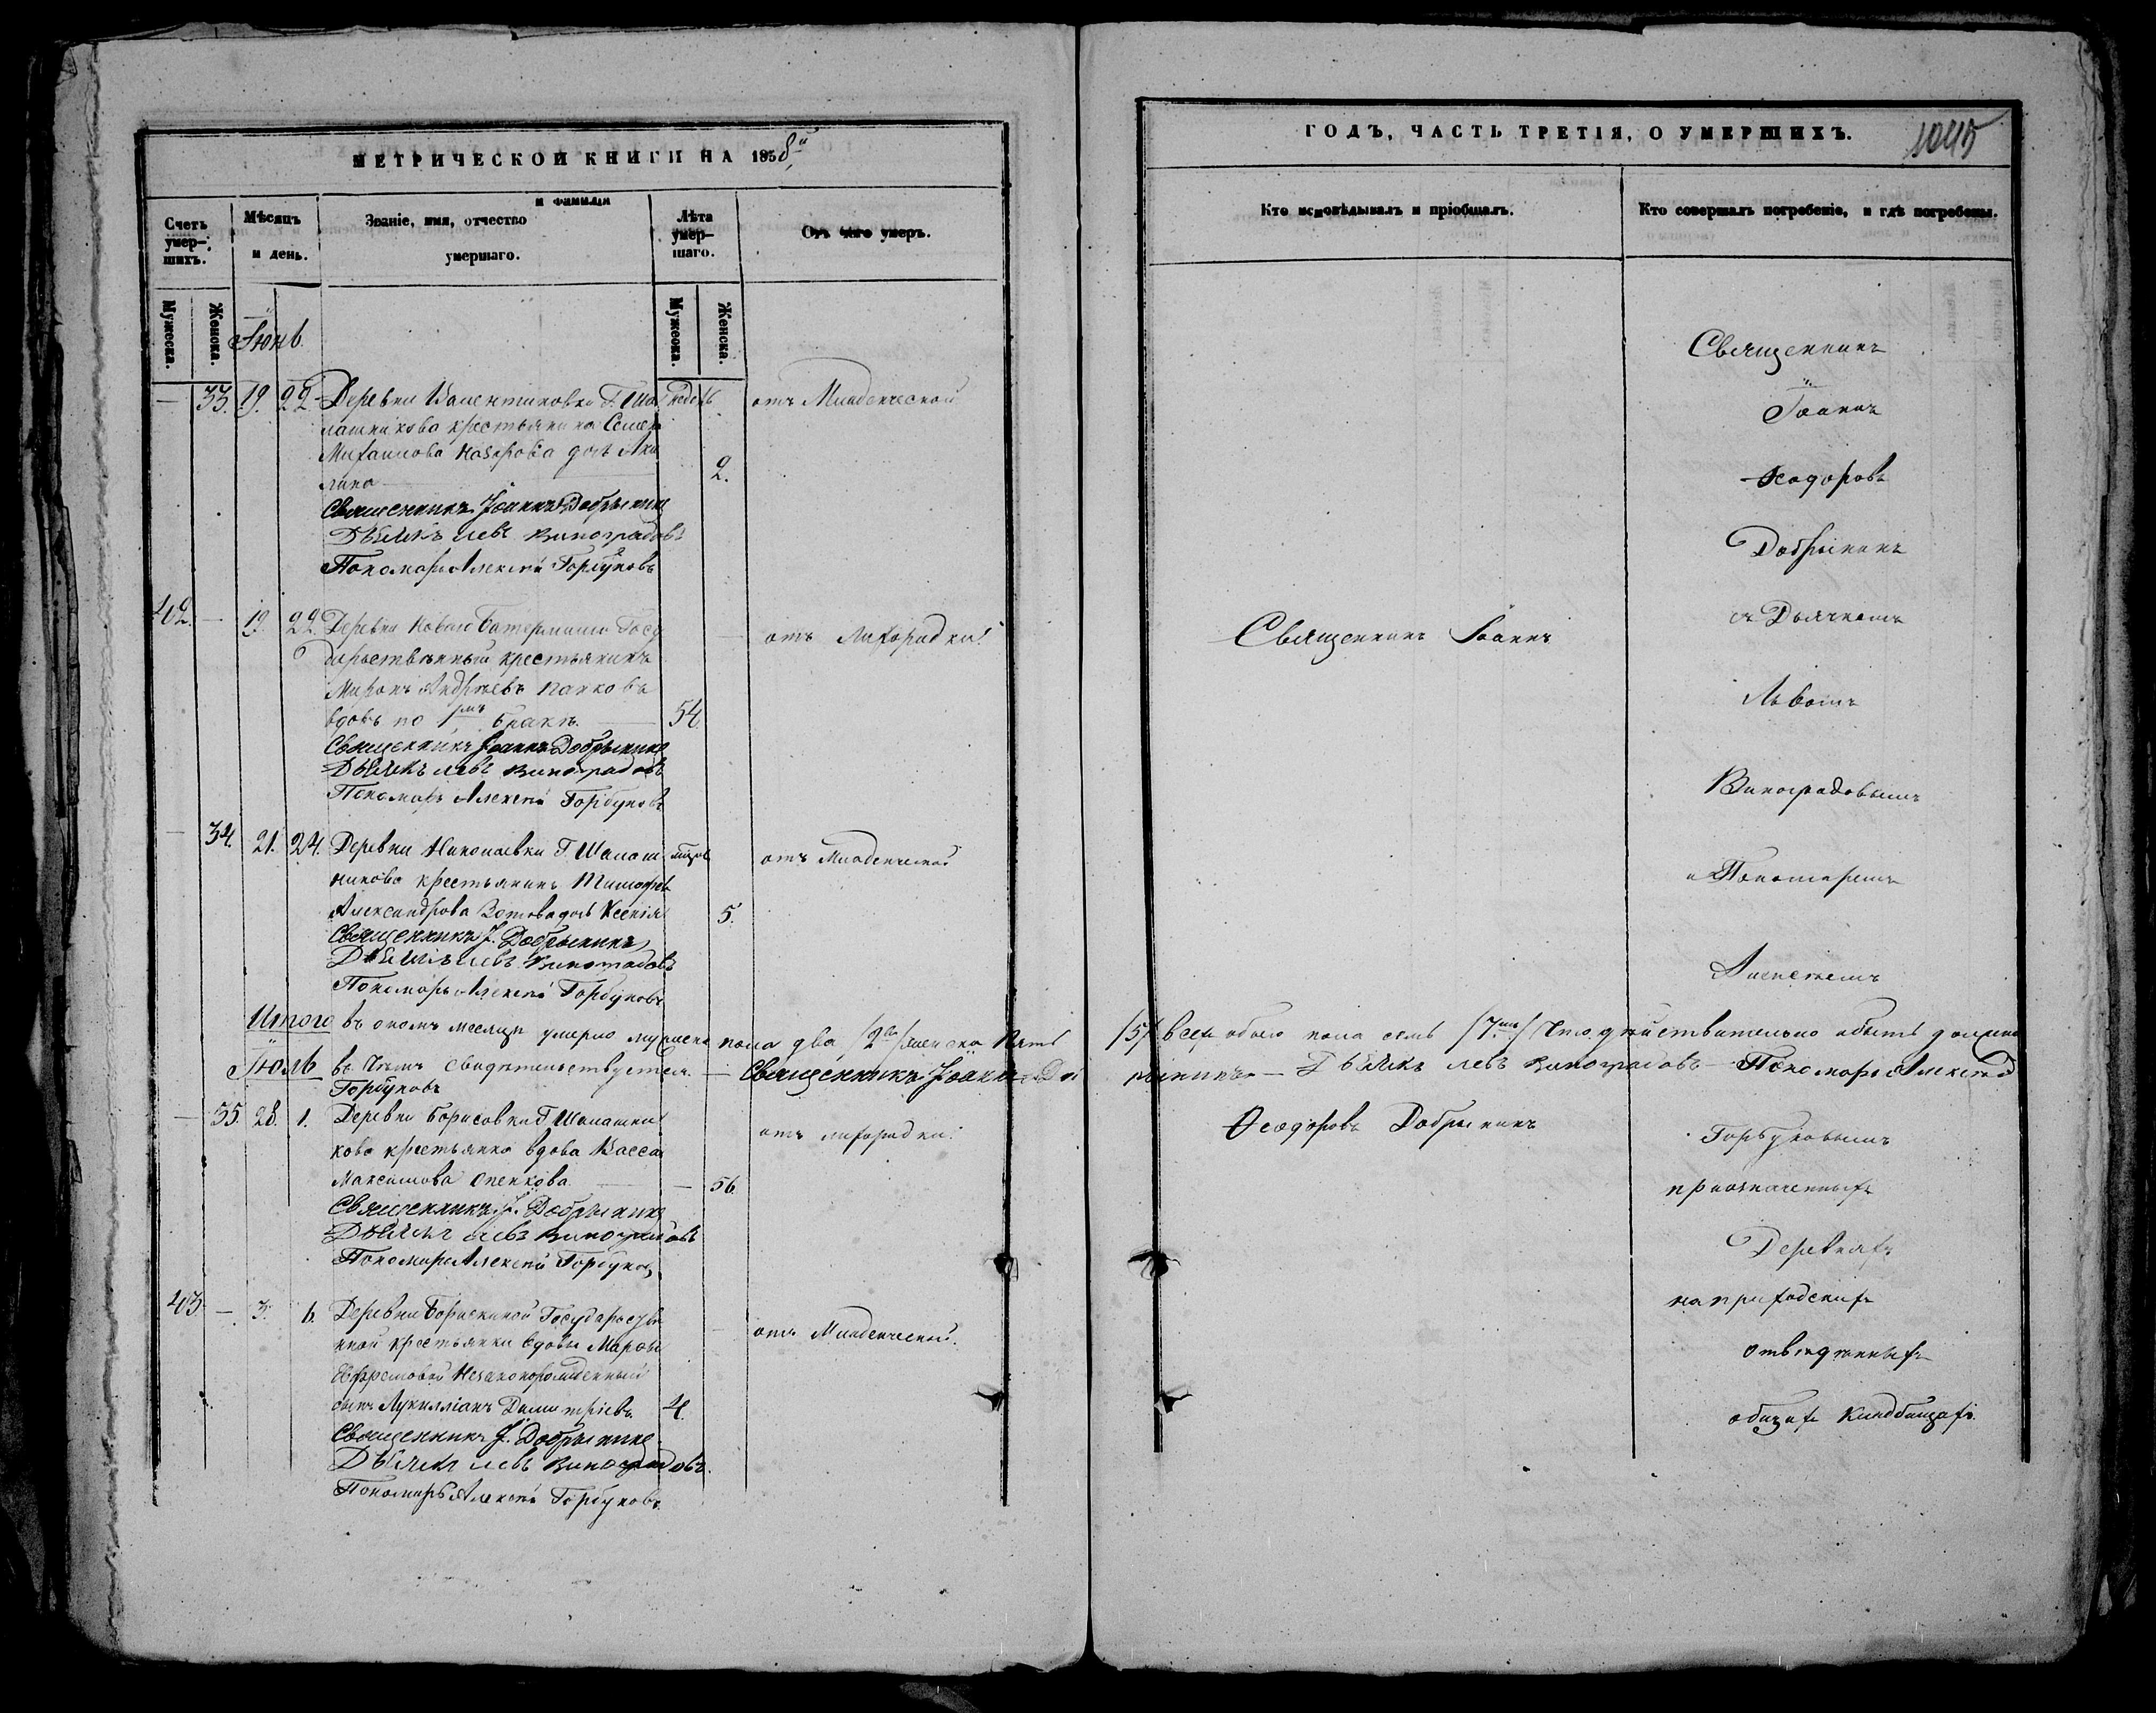 МЕТРИЧЕСКОЙ КНИГИ НА 1858й
Счетъ умер-шихъ.
Мѣсяцъ и день.
Званіе, имя, отчество и фамилія умершаго.
Лѣта умер-шаго.
Отъ чего умеръ.
Мужеска.
Женска.
Мужеска.
Женска.
Іюнь
— 33. 19. 22. Деревни Валентиновки Г. Ша недѣль отъ Младенческой
лашникова крестьянина
Михаилова Назарова дочь Аки
лина 2.
Священникъ Іоаннъ Добрынинъ
Дьячекъ Левъ Виноградовъ
Пономарь Алексѣй Горбуновъ
42. — 19. 22. Деревни Новаго Батермыша Госу отъ лихорадки.
дарственный крестьянинъ
Миронъ Андреевъ Панковъ
вдовъ по 1мъ бракѣ. 54.
Священникъ Іоаннъ Добрынинъ
Дьячекъ Левъ Виноградовъ
Пономарь Алексѣй Горбуновъ
— 34. 21. 24. Деревни Николаевки Г. Шалаш отъ Младенческой
никова крестьянина
Александрова Зотова дочь Ксенія 5.
Священникъ І. Добрынинъ
Дьячекъ Левъ Виноградовъ
Пономарь Алексѣй Горбуновъ
Итого въ ономъ месяцѣ умерло мужеска пола два /2ва/ женска пять
Іюль въ чемъ свидѣтельствуется. — Священникъ Іоаннъ До
Горбуновъ
— 35. 28. 1. Деревни Борисовки Г. Шалашни отъ лихорадки.
кова крестьянка вдова Васса
Максимова Опенкова — 56.
Священникъ І. Добрынинъ
Дьячекъ Левъ Виноградовъ
Пономарь Алексѣй Горбуновъ
43. — 3. 6. Деревни Борискиной Государстве отъ Младенческой.
нной крестьянки вдовы Марѳы
Ефремовой Незаконорожденный
сынъ Лукилліанъ Димитріевъ. 4.
Священникъ І. Добрынинъ
Дьячекъ Левъ Виноградовъ.
Пономарь Алексѣй Горбуновъ.
ГОДЪ, ЧАСТЬ ТРЕТІЯ, О УМЕРШИХЪ.
Кто исповѣдывалъ и пріобщалъ.
Кто совершалъ погребеніе, и гдѣ погребены.
Священникъ
Іоаннъ
Ѳеодоровъ
Добрынинъ
съ Дьячкомъ
Священникъ Іоаннъ
Львомъ
Виноградовымъ
и Пономаремъ
Алексѣемъ
/5/ всего обоего пола семь /7мь/ Что дѣйствительно
рынинъ — Дьячекъ Левъ Виноградовъ — Пономарь Алексѣй
Ѳеодоровъ Добрынинъ
Горбуновымъ
Деревняхъ
на приходскихъ
отведенныхъ
общихъ Кладбищахъ.